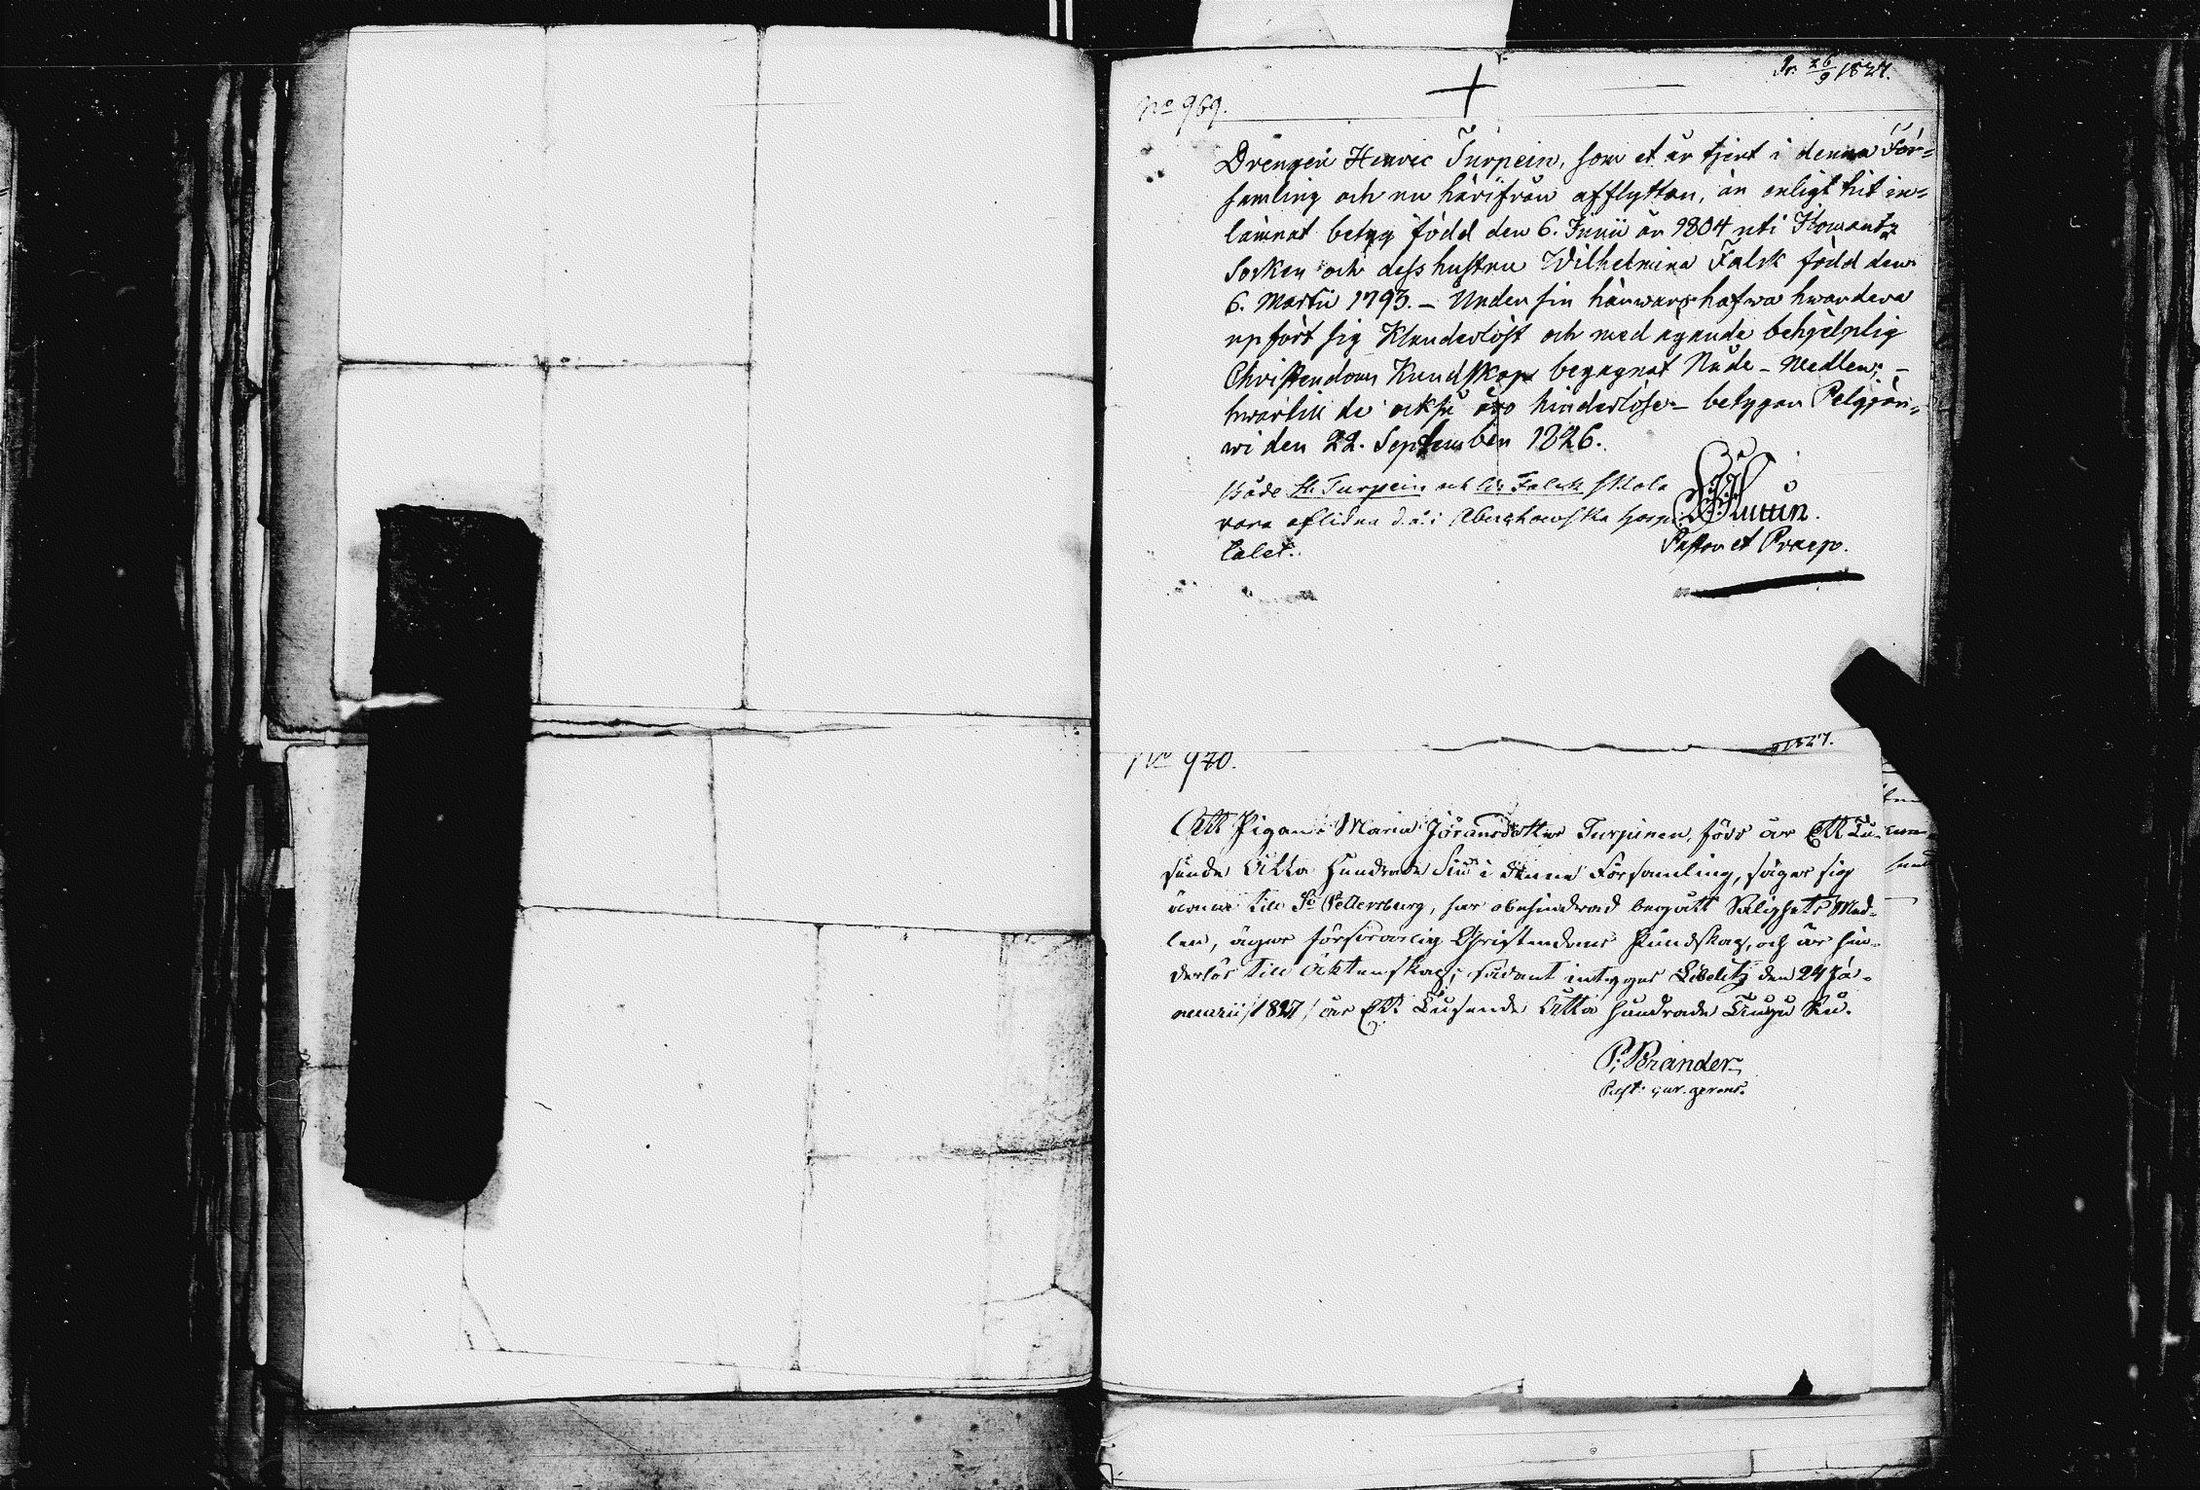 Pr. 26/9 1827.
No 969.
Drengen Henric Turpein, som et år tjent i denna För=
samling och nu härifrån afflyttar, är enligt hit in=
lämnat betyg född den 6. Junii år 1804 uti Ilomantz
Socken och dess hustru Wilhelmina Falck född den
6. Martii 1793. – Under sin härwaro hafwa hwardera
upfört sig Klanderlöst och med ägande behjelplig
Christendoms Kundskap begagnat Nåde-Medlen; –
hwartill de också äro hinderlöse – betygar Pelgjär=
wi den 22. September 1826.
Både H. Turpein och W. Falck skola
vara aflidna d. ä. i Abuchowska hospi
talet.
Pastor et Praep.
No 970.
1827.
Att Pigan Maria Jöransdotter Turpinen, född år Ett Tu-
sende Åtta Hundrade Siu i denna Församling, säger sig
ärna till St Pettersburg, har obehindrad begått Salighets Med-
len, äger försvarlig Christendoms Kundskap, och är hin-
derlös till Ächtenskap; sådant intygar Libelitz den 24 Ja-
nuarii /1827/ år Ett Tusende Åtta hundrade Tiugu Siu.
P. Perander
Past: cur. gerens.